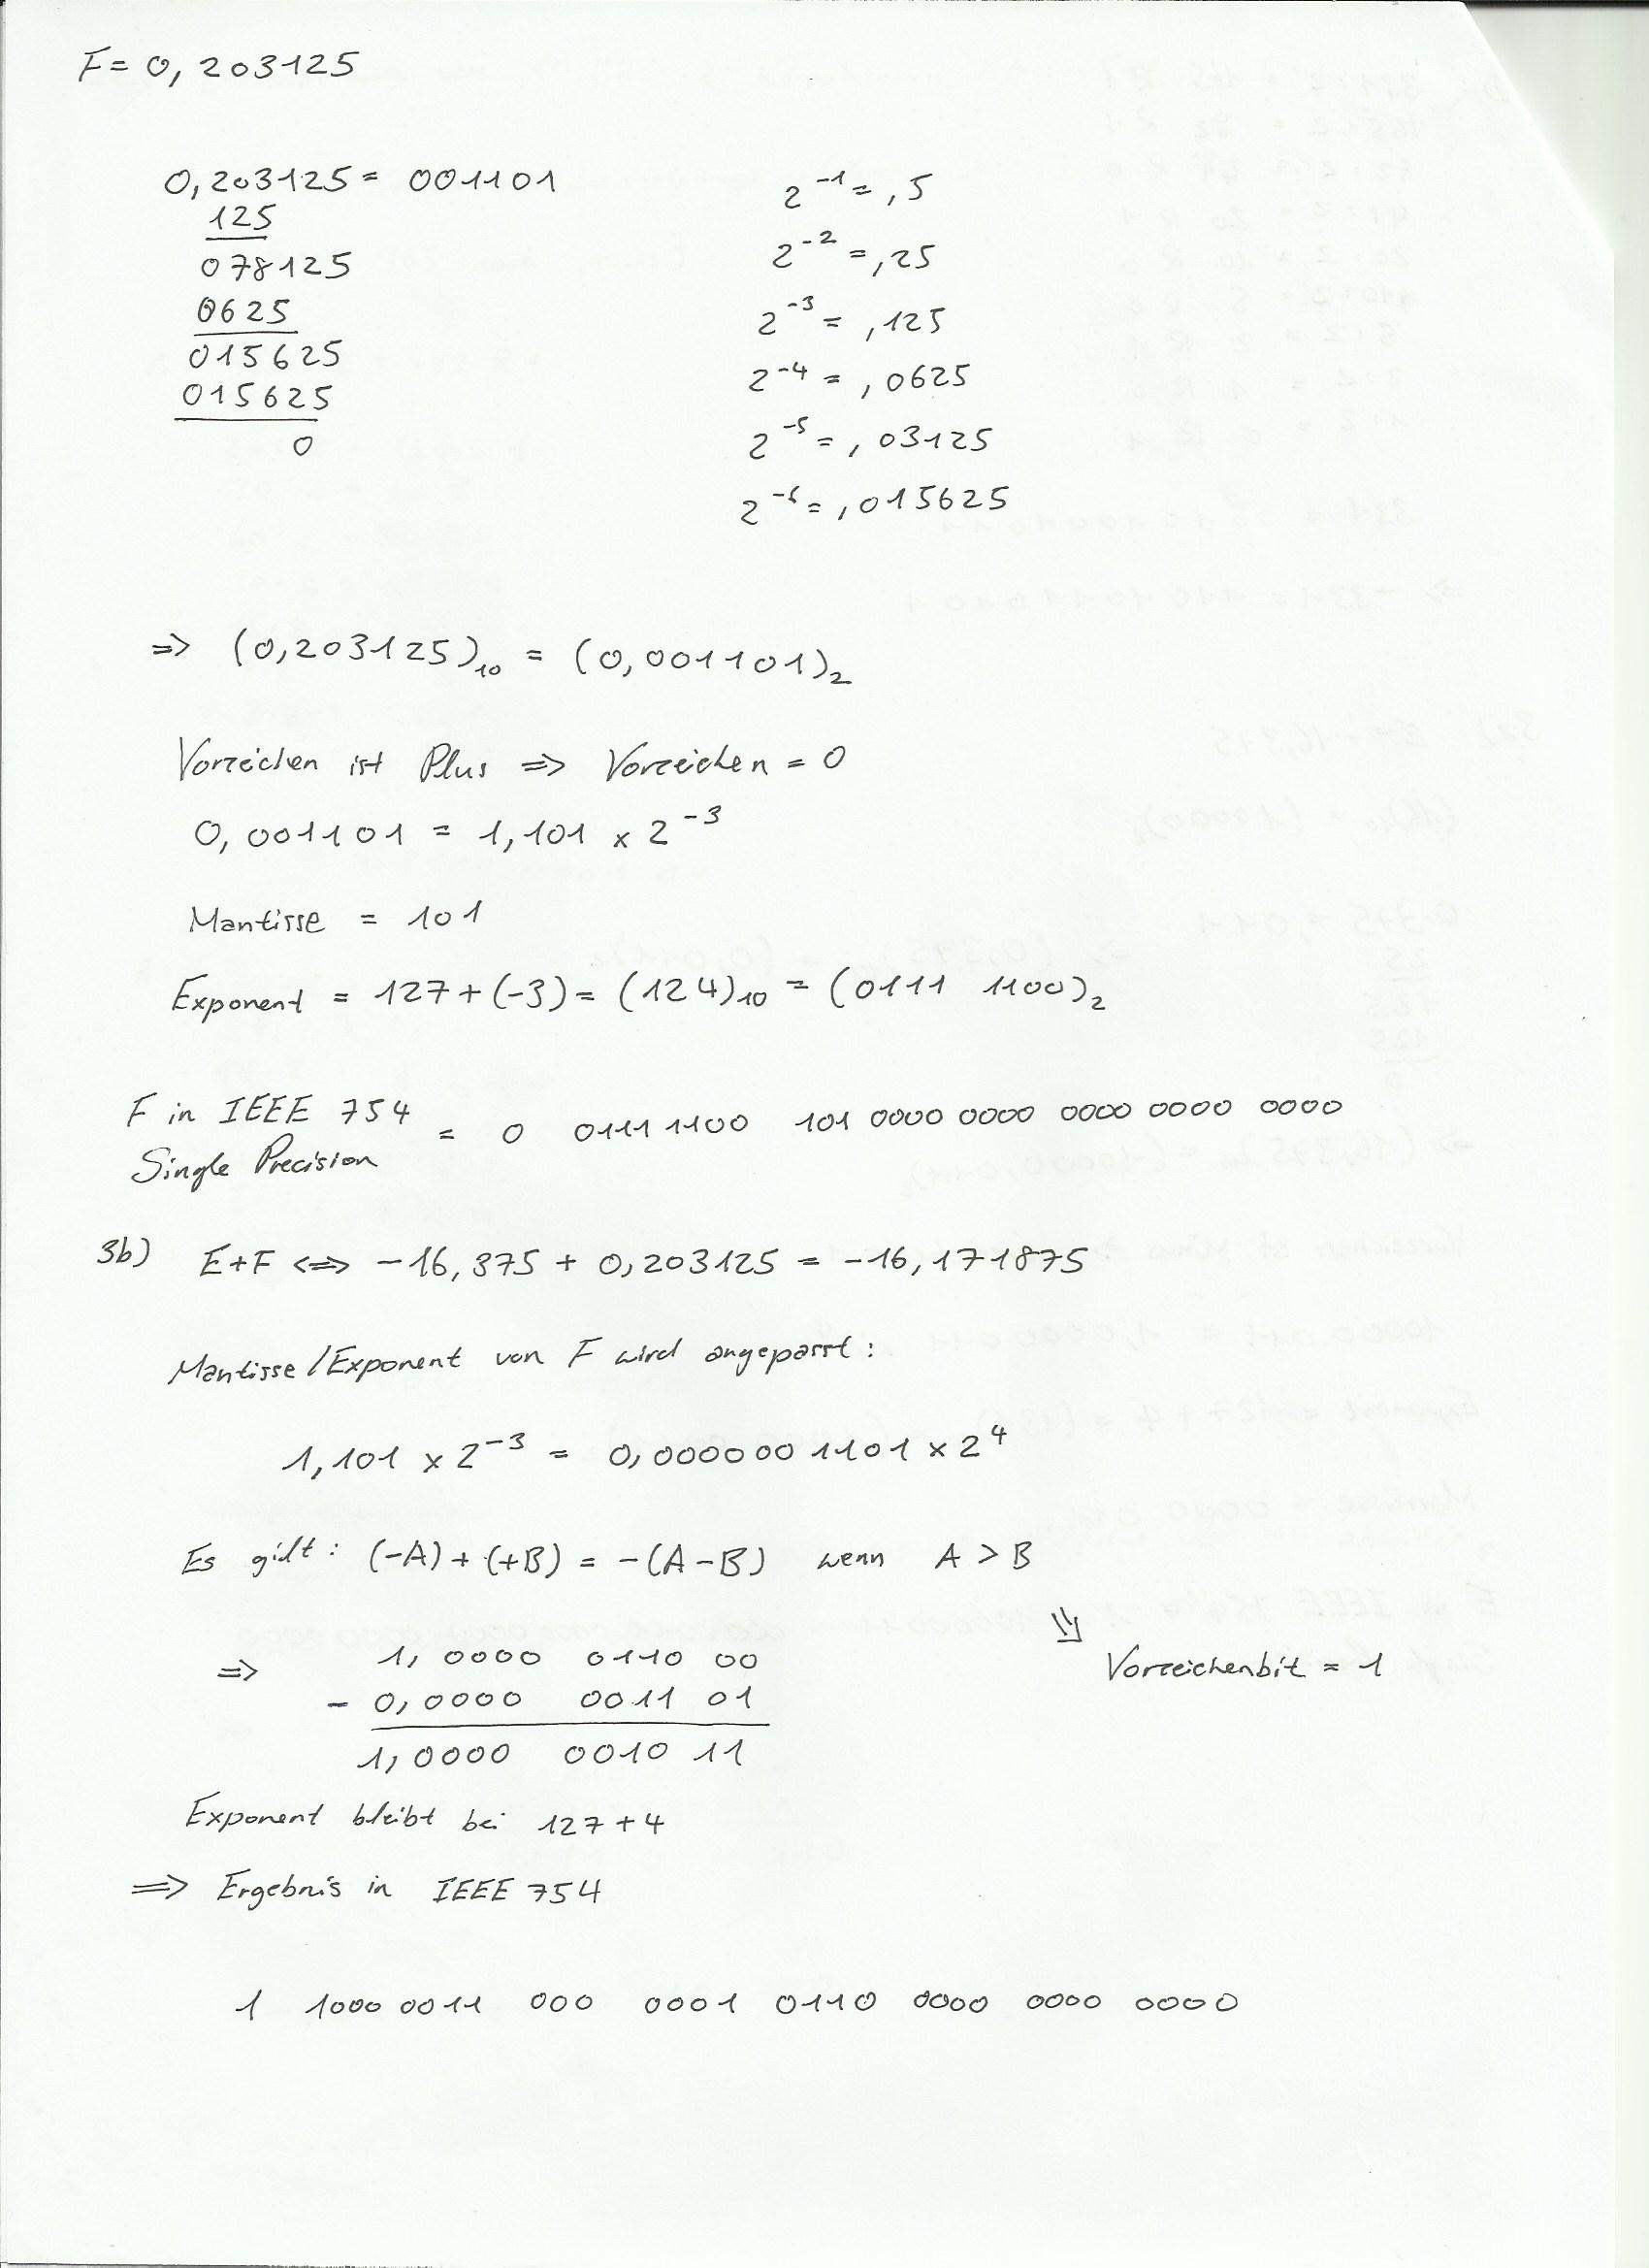 F = 0,203125
0,203125 = 001101
125
078125
0625
015625
015625
0
2^-1 = ,5
2^-2 = ,25
2^-3 = ,125
2^-4 = ,0625
2^-5 = ,03125
2^-6 = ,015625
=> (0,203125)10 = (0,001101)2
Vorzeichen ist Plus => Vorzeichen = 0
0,001101 = 1,101 x 2^-3
Mantisse = 101
Exponent = 127+(-3) = (124)10 = (0111 1100)2
F in IEEE 754
Single Precision = 0 0111 1100 101 0000 0000 0000 0000 0000
3b) E+F <=> -16,375 + 0,203125 = -16,171875
Mantisse/Exponent von F wird angepasst:
1,101 x 2^-3 = 0,0000001101 x 2^4
Es gilt: (-A) + (+B) = -(A-B) wenn A > B
=> 1,0000 0110 00
- 0,0000 0011 01
1,0000 0010 11
⇓ Vorzeichenbit = 1
Exponent bleibt bei 127+4
=> Ergebnis in IEEE 754
1 1000 0011 000 0001 0110 0000 0000 0000